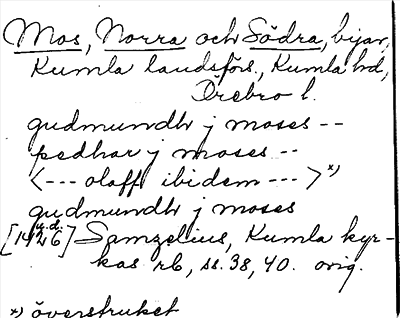 Mos, Norra och Södra, byar,
Kumla landsförs., Kumla hd,
Örebro l.
gudmundh j moses --
pedhar j moses --
<--- olaff ibidem --->*)
gudmundh j moses
[1426] u.d. Samzelius, Kumla kyr-
kas rb, ss. 38, 40. orig.
*) överstruket